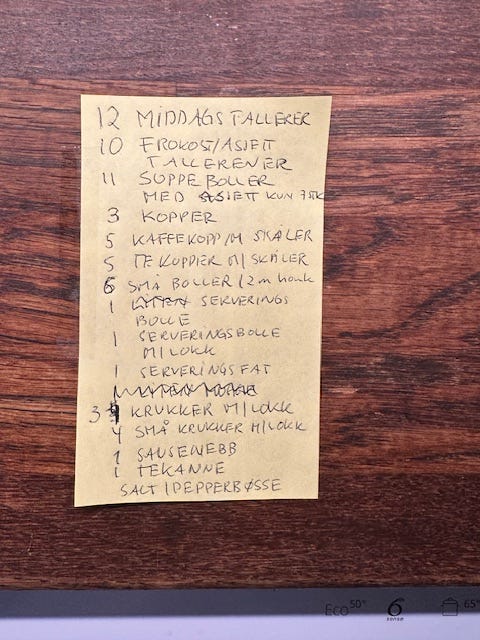 12 MIDDAGSTALLERER
10 FROKOST/ASJETT
TALLERENER
11 SUPPEBOLLER
MED ASJETT KUN 7 STK
3 KOPPER
5 KAFFEKOPP/M SKÅLER
5 TEKOPPER M/SKÅLER
6 SMÅ BOLLER/2 m hank
1 LITEN SERVERINGS
BOLLE
1 SERVERINGSBOLLE
M/LOKK
1 SERVERINGSFAT
1 LITEN
3 KRUKKER M/LOKK
4 SMÅ KRUKKER M/LOKK
1 SAUSENEBB
1 TEKANNE
SALT/PEPPERBØSSE
Eco 50° 6th sense 65°